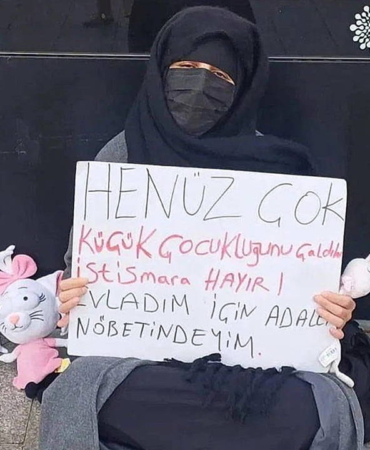 HENÜZ ÇOK
KÜÇÜK ÇOCUKLUğunu Çaldıla
istismara HAYIR!
VLADIM İÇİN ADALE
NÖBETİNDEYİM.